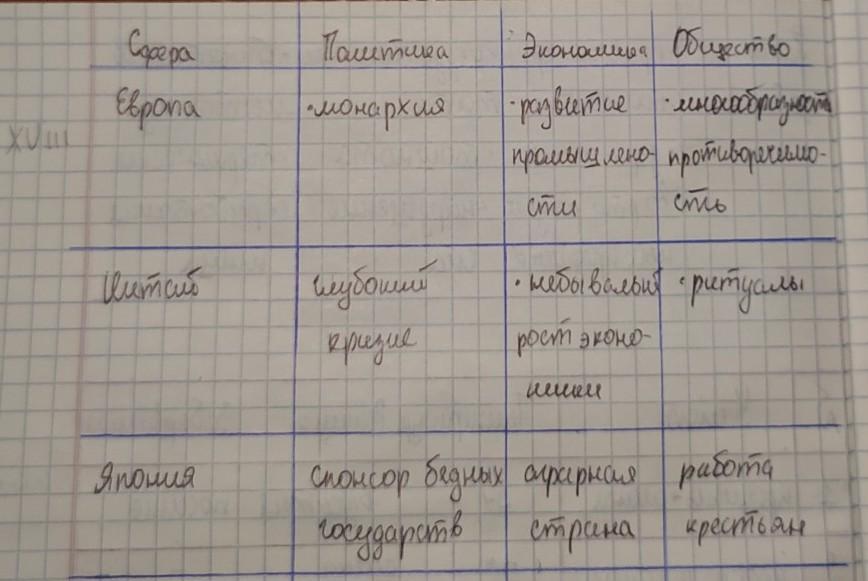 Сфера Политика Экономика Общество
XVIII
Европа
·монархия
·развитие
промышлено-
сти
·многообразность
противоречимо-
сть
Китай
глубокий
кризис
·небывалый
рост эконо-
мики
·ритуалы
Япония
спонсор бедных
государств
аграрная
страна
работа
крестьян